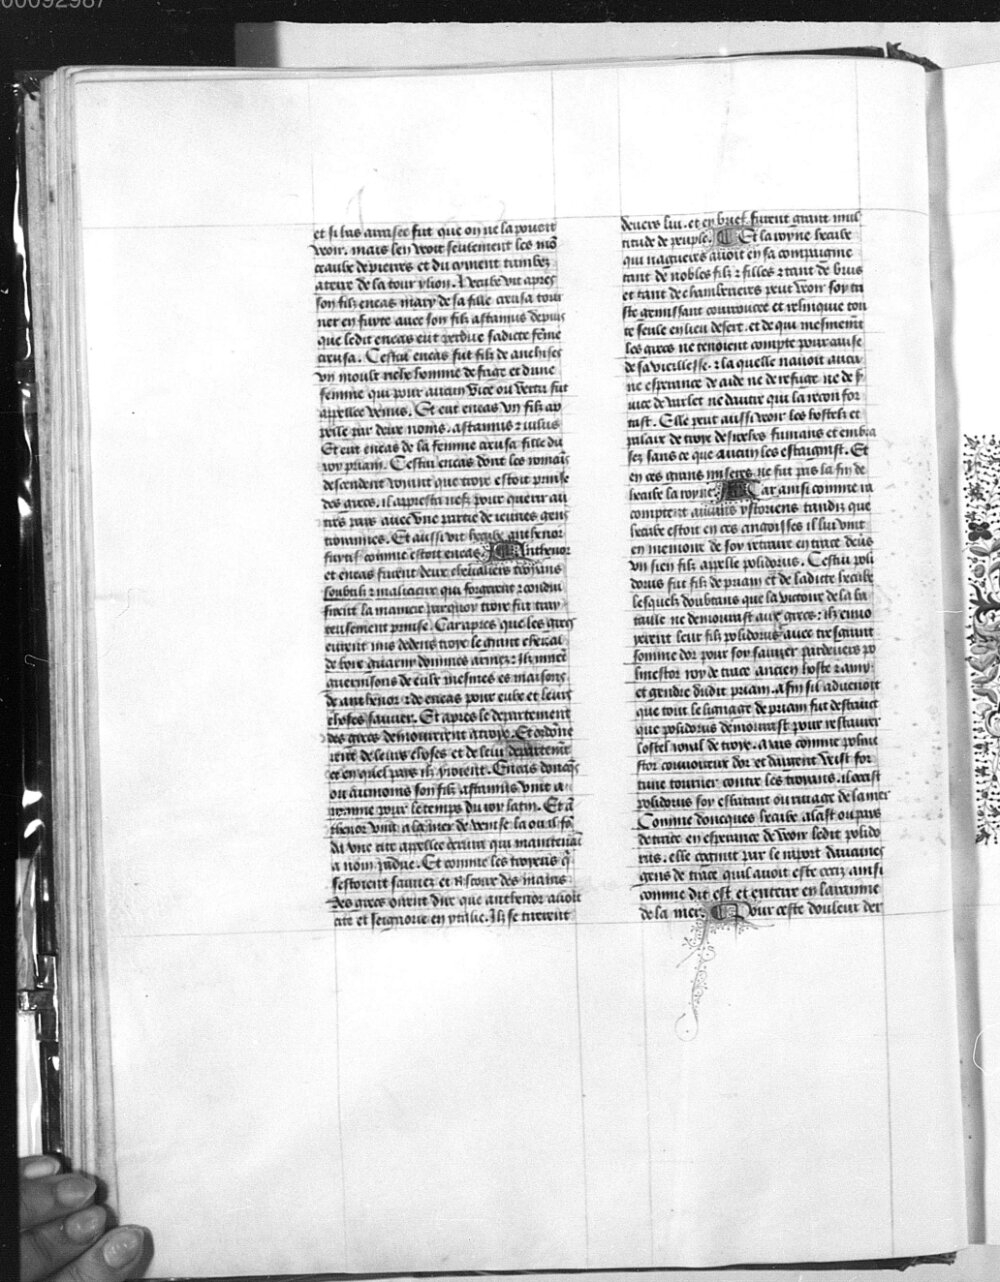 00092987
et si bas arrasee fut que on ne la pouoit
veoir. mais len veoit seulement les mō
ceaulx de pierres et du ciment tumbez
aterre de la tour ylion. Hecube vit apres
son filz eneas mary de sa fille creusa tour
ner en fuyte auec son filz astanius depuis
que ledit eneas eut perdue sadicte fēme
creusa. Cestui eneas fut filz de anchises
vn moult riche homme de frige et dune
femme qui pour aucun vice ou vertu fut
appellee venus. Et eut eneas vn filz ap
pelle par deux noms. astanius ⁊ iulius
Et eut eneas de la femme creusa fille du
roy priam. Cestui eneas dont les romaīs
descendent voiant que troye estoit prinse
des grecs. il appresta nefz pour querir au
tres pays auec vne partie de ieunes gens
troiannes. Et aussi vit hecube anthenor
fuitif comme estoit eneas. Anthenor
et eneas furent deux cheualiers troyans
soubtilz ⁊ malicieux qui forgerent ⁊ condui
sirent la maniere parquoy troye fut tray
treusement prinse. Car apres que les grecs
eurent mis dedens troye le grant cheual
de boys guarny dommes armez: ilz mirēt
guernisons de eulx mesmes es maisons
de anthenor ⁊ de eneas pour eulx et leurs
choses sauuer. Et apres le departement
des grecs demourerent a troye. Et ordōne
rent de leurs choses et de leur departemēt
et en quel pays ilz yroient. Eneas doncqs
ou aumoins son filz astanius vint a
romme pour le temps du roy latin. Et ā
thenor vint a la mer de venise la ou il fō
da vne cite appellee qui maintenāt
a nom padue. Et comme les troyens q̄
sestoient sauuez et rescoux des mains
des grecs ouirent dire que anthenor auoit
cite et seignorie en ytalie. Ilz se tirerent
deuers lui. et en brief furent grant mul
titude de peuple. Et la royne hecube
qui nagueres auoit en sa compaignie
tant de nobles filz ⁊ filles ⁊ tant de brus
et tant de chambrieres peut veoir soy tri
ste gemissant courroucee et relinquie tou
te seule en lieu desert. et de qui mesmemēt
les grecs ne tenoient compte pour cause
de sa vieillesse. ⁊ la quelle nauoit aucu
ne esperance de aide ne de refuge ne de s̄
uice de varlet ne dautre qui la recon for
tast. Elle peut aussi veoir les hostelz et
palaix de troye desroches fumans et embra
sez sans ce que aucun les estaignist. Et
en ces grans miseres ne fut pas la fin de
hecube la royne. Car ainsi comme ra
comptent aucuns ystoriens tandiz que
hecube estoit en ces angoisses il lui vint
en memoire de soy retraire en trace deūs
vn sien filz appelle polidorus. Cestui poli
dorus fut filz de priam et de ladicte hecube
lesquelz doubtans que la victoire de la ba
taille ne demourast aux grecs: ilz enuo
yerent leur filz polidorus auec tresgrant
somme dor pour soy sauuer pardeuers po
limestor roy de trace ancien hoste ⁊ amy
et gendre dudit priam. afin sil aduenoit
que tout le lignage de priam fut destruit
que polidorus demourast pour restaurer
lostel roial de troye. Mais comme polme
stor conuoiteux dor et dargent veist for
tune tourner contre les troyans. il occist
polidorus soy esbatant ou riuage de la mer
Comme doncques hecube alast ou pays
de trace en esperance de veoir ledit polido
rus. elle cognut par le raport daucunes
gens de trace quil auoit este occiz ainsi
comme dit est et enterre en larauine
de la mer. Pour ceste douleur der